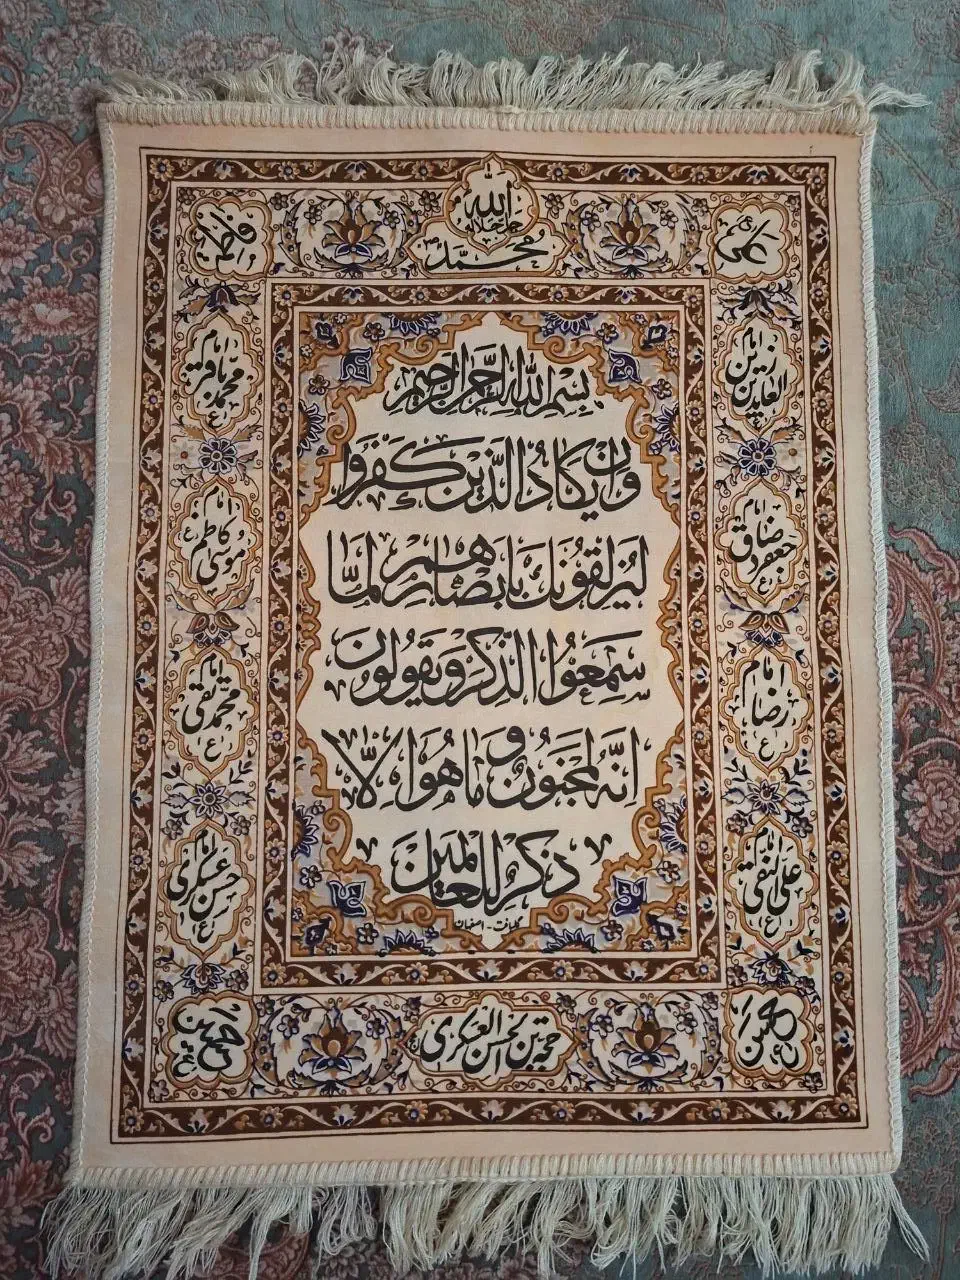 الله
جل جلاله
محمد ص
علی ع
فاطمه
بسم الله الرحمن الرحیم
وان یکاد الذین کفروا
لیزلقونک بابصارهم لما
سمعوا الذکر و یقولون
انه لمجنون و ما هوا لا
ذکر للعالمین
گلبافت - اصفهان
امام زین العابدین
امام محمد باقر ع
امام جعفر صادق ع
امام موسی کاظم ع
امام رضا ع
امام محمد تقی ع
امام علی النقی ع
امام حسن عسکری ع
حسن ع
حسین
حجة بن الحسن العسکری ع